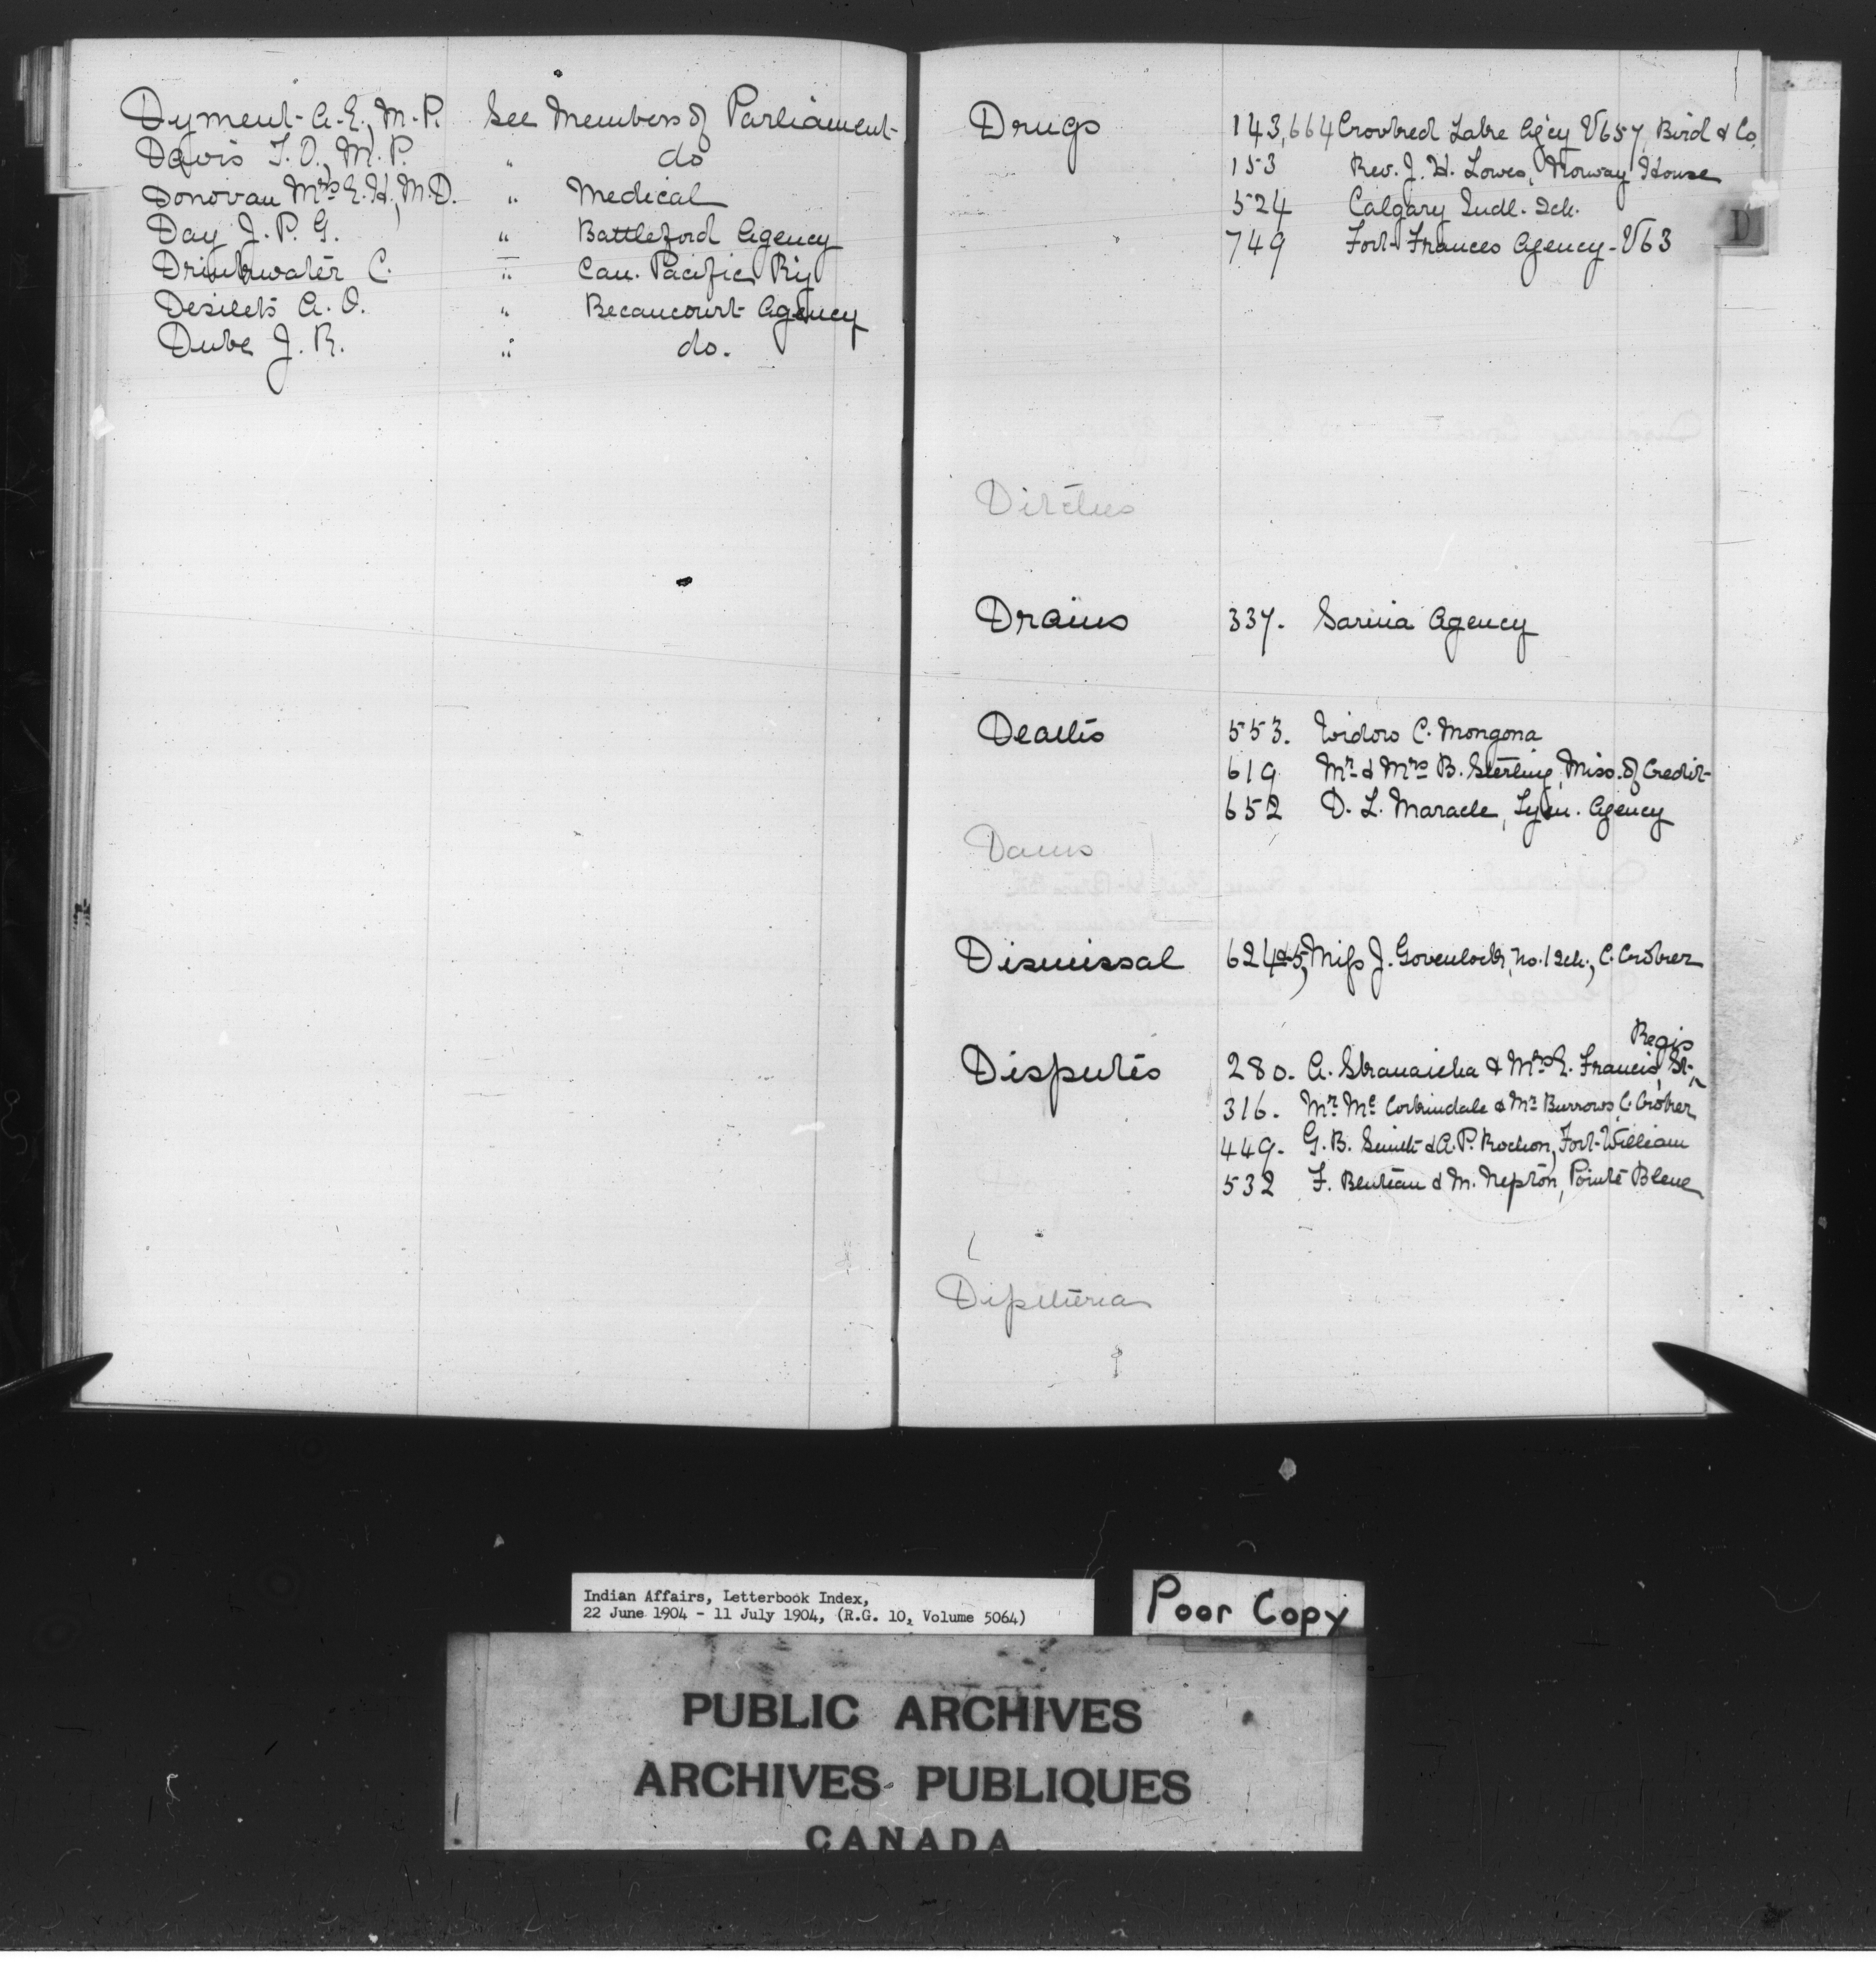 Dyment A.E., M.P. See Members of Parliament
Davis T.O., M.P. " do
Donovan Mrs E.H., M.D. " Medical
Day J.P.G. " Battleford Agency
Drinkwater C. " Can. Pacific Ry
Desilets A.O. " Becancourt Agency
Dube J.R. " do.
Drugs 143,664 Crooked Lake Agcy V657, Bird & Co.
153 Rev. J.H. Lowes, Norway House
524 Calgary Indl. Sch.
749 Fort Frances Agency - V63
D
Ditches
Drains 337. Sarnia Agency
Deaths 553. Isidore C. Mongona
619 Mr & Mrs B. Sterling, Miss. of Credit
652 D.L. Maracle, Tyen. Agency
Dams
Dismissal 624&5, Miss J. Govenlock, No. 1 Sch., C. Croker
Regis
Disputes 280. A. & Mrs E. Francis, St.
316. Mr Mc Corkindale & Mr Burrows, C. Croker
449. G.B. Smith & A.P. Rochon, Fort William
532 F. & M. Nepton, Pointe Bleue
Diptheria
Indian Affairs, Letterbook Index,
22 June 1904 - 11 July 1904, (R.G. 10, Volume 5064)
Poor Copy
PUBLIC ARCHIVES
ARCHIVES PUBLIQUES
CANADA